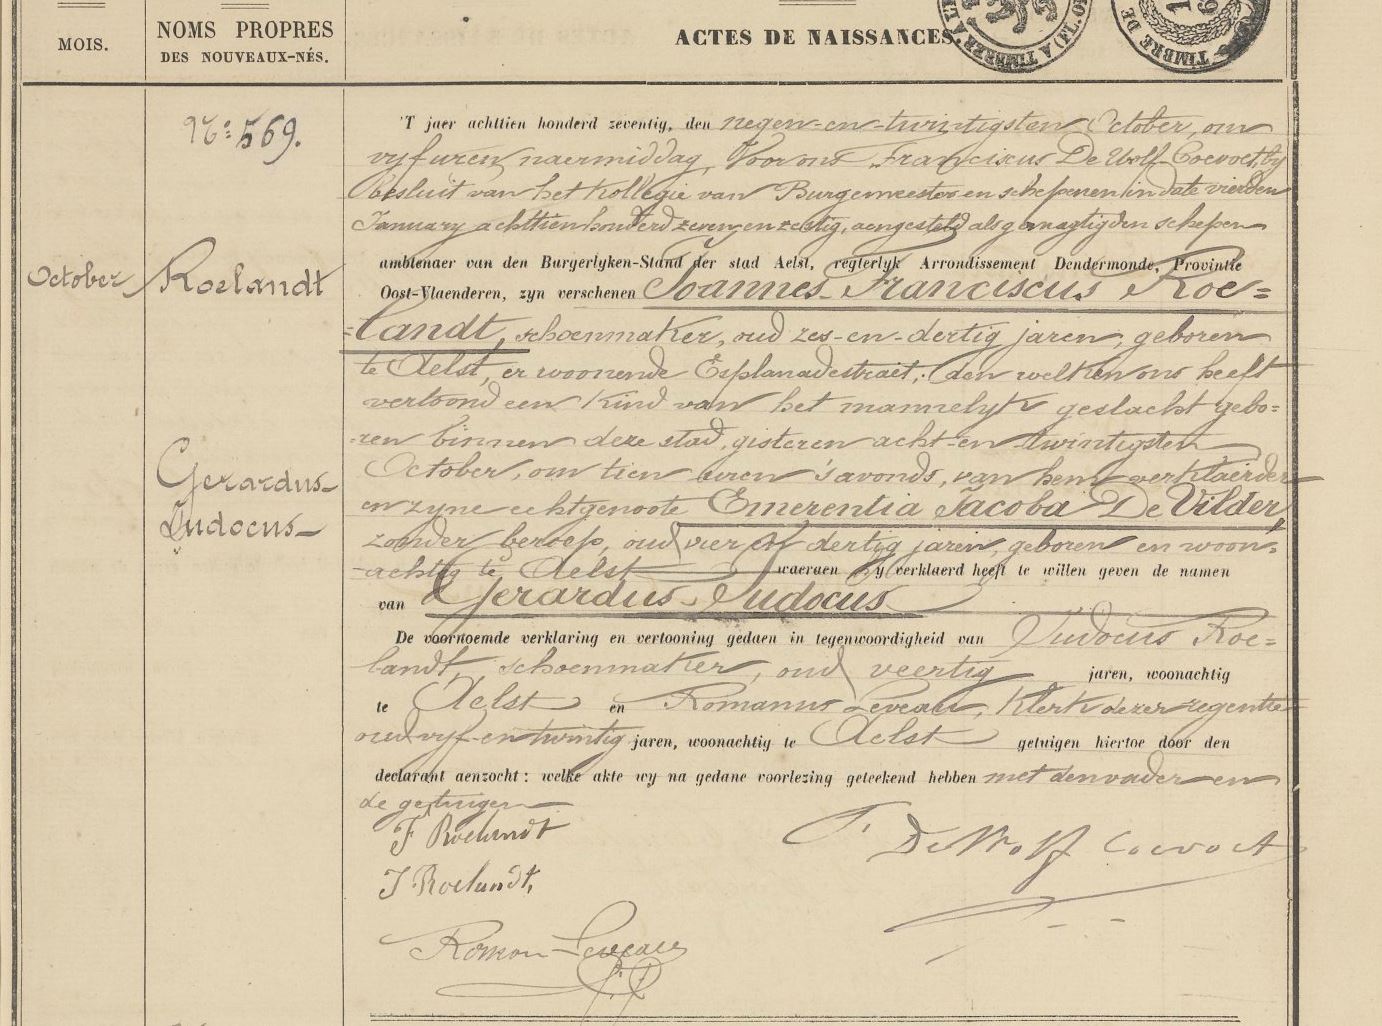 MOIS.
NOMS PROPRES
DES NOUVEAUX-NÉS.
ACTES DE NAISSANCES.
TIMBRE DE
No: 569.
October
Roelandt
Gerardus
Judocus
'T jaer achttien honderd zeventig, den negen-en-twintigsten October, om
vyf uren naermiddag, Voor ons Franciscus De Wolf-Coevoet, by
besluit van het Kollegie van Burgemeester en schepenen in date vierden
January achttienhonderd zevenenzestig, aengesteld als gemagtigden schepen
ambtenaer van den Burgerlyken-Stand der stad Aelst, regterlyk Arrondissement Dendermonde, Provintie
Oost-Vlaenderen, zyn verschenen Joannes-Franciscus Roe=
=landt, schoenmaker, oud zes-en-dertig jaren, geboren
te Aelst, er woonende Esplanadestraet, den welken ons heeft
vertoond een Kind van het mannelyk geslacht gebo=
=ren binnen deze stad, gisteren acht-en-twintigsten
October, om tien uren 's avonds, van hem verklaerder
en zyne echtgenoote Emerentia Jacoba De Vilder,
zonder beroep, oud vier en dertig jaren, geboren en woon=
=achtig te Aelst waeraen hy verklaerd heeft te willen geven de namen
van Gerardus-Judocus
De voornoemde verklaring en vertooning gedaen in tegenwoordigheid van Judocus Roe=
landt, schoenmaker, oud veertig jaren, woonachtig
te Aelst en Romanus Leveau, Klerk dezer regentie
oud vyf-en-twintig jaren, woonachtig te Aelst getuigen hiertoe door den
declarant aenzocht: welke akte wy na gedane voorlezing geteekend hebben met den vader en
de getuigen
F Roelandt
J Roelandt,
F. De Wolf Coevoet
Roman Leveau